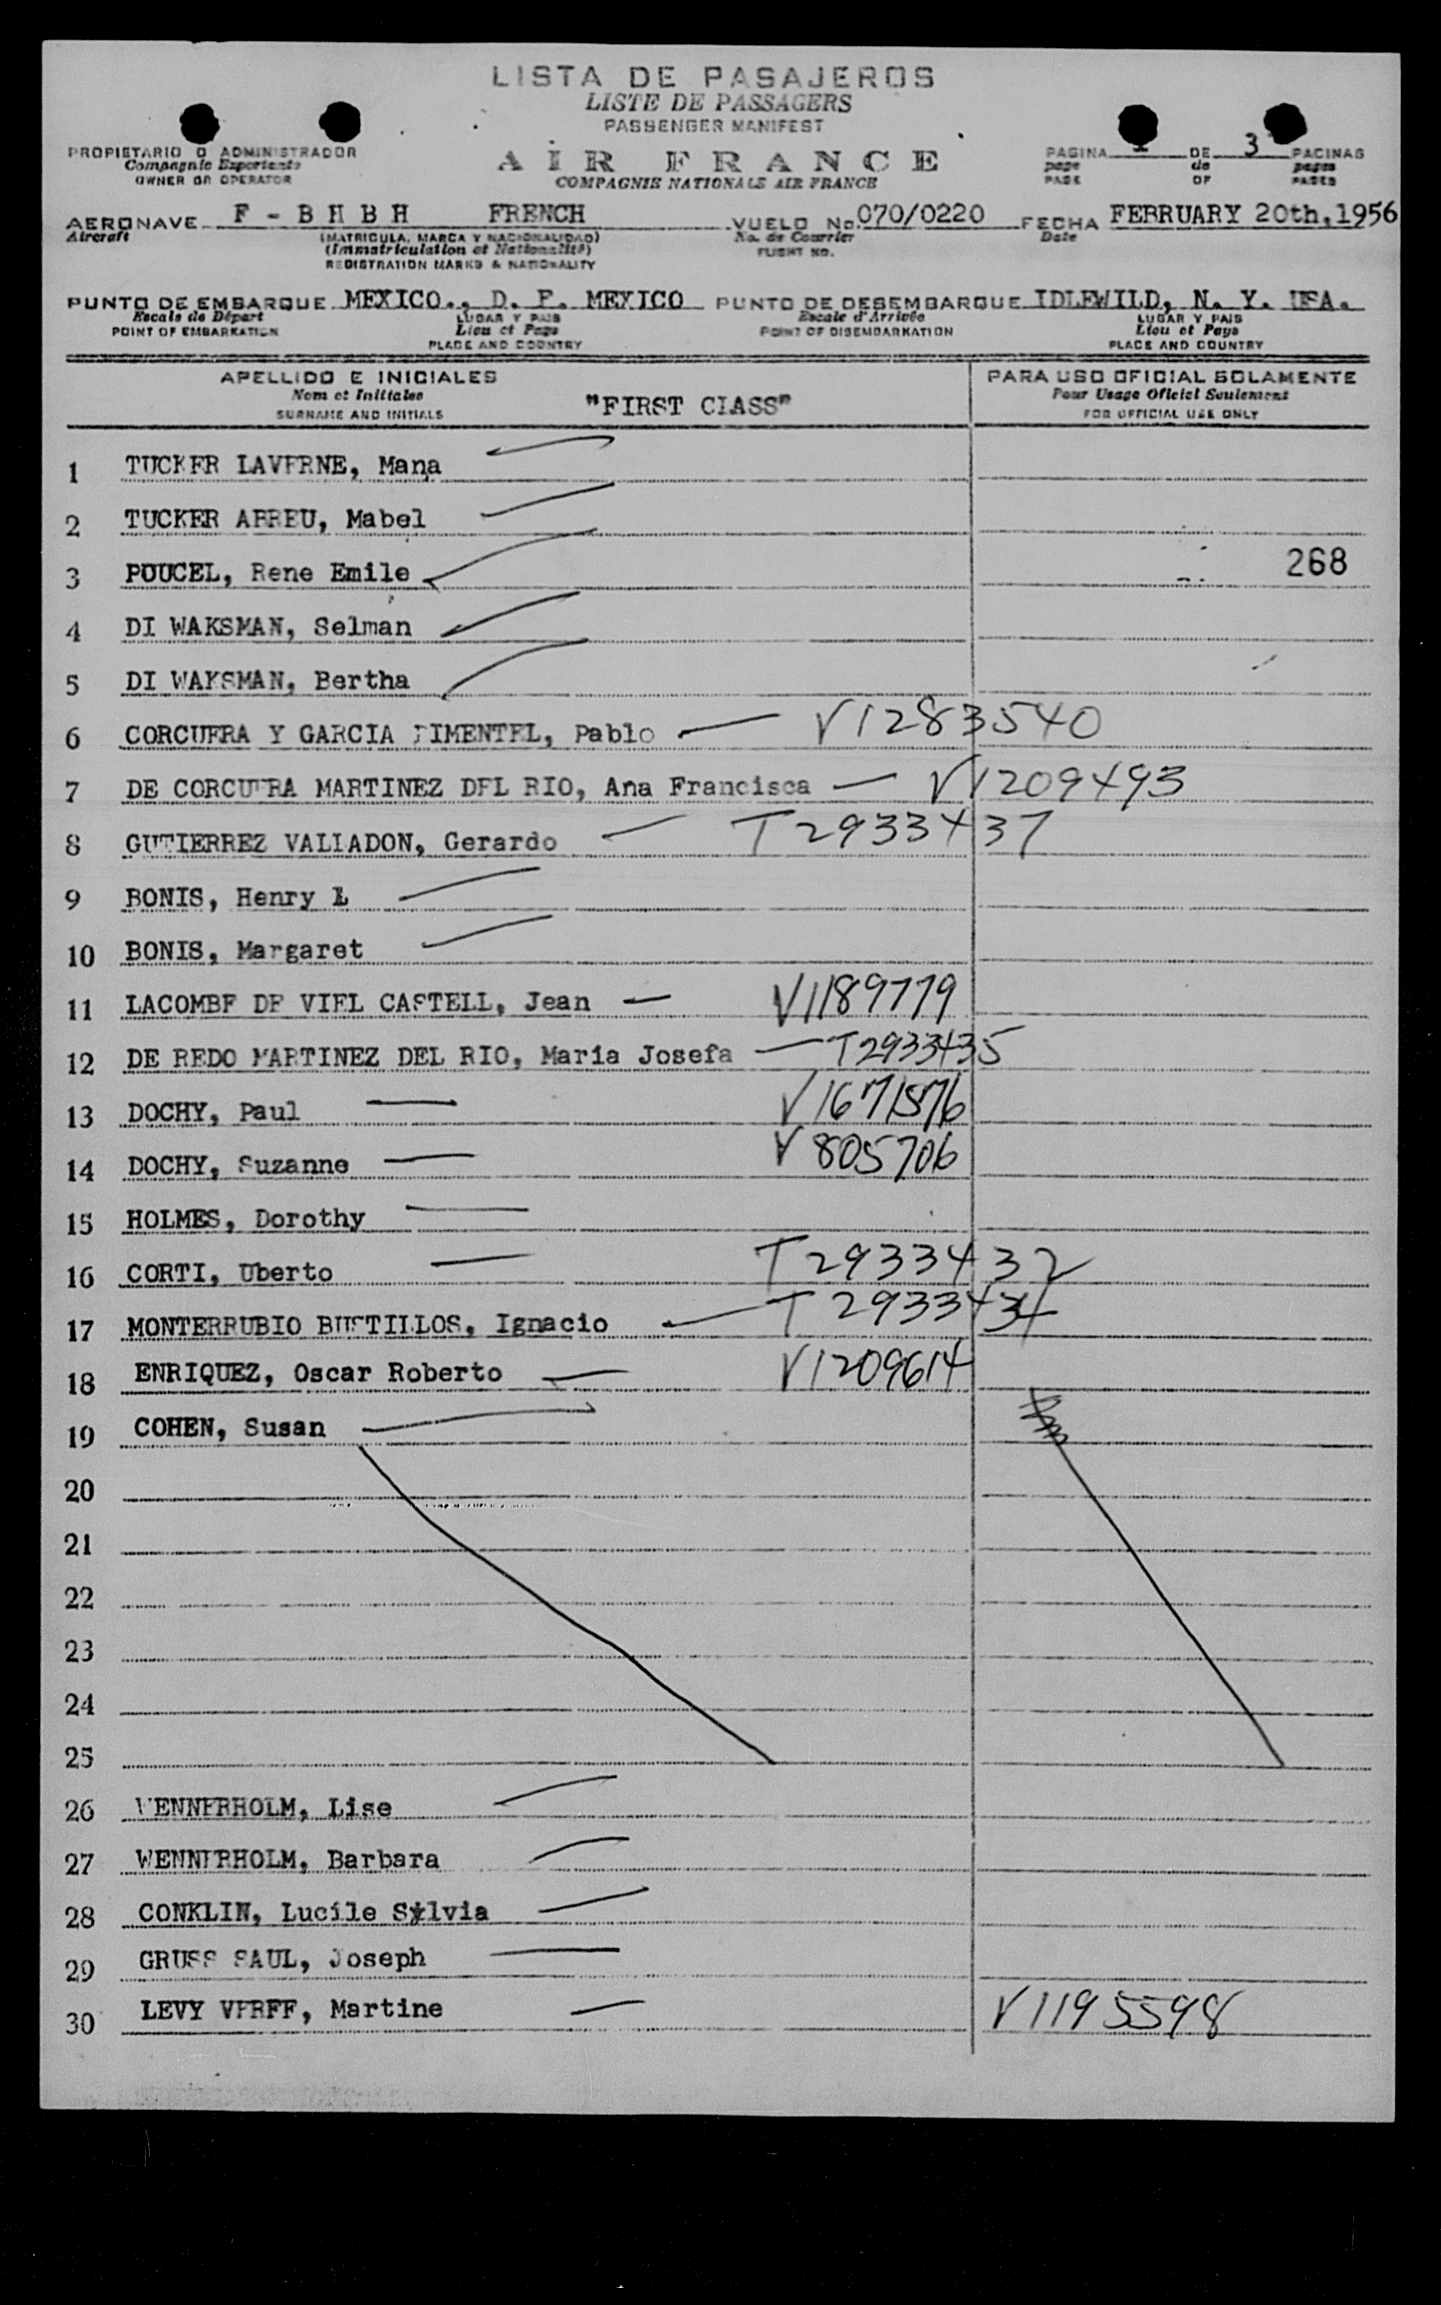 LISTA DE PASAJEROS
LISTE DE PASSAGERS
PASSENGER MANIFEST
PROPIETARIO O ADMINISTRADOR
Compagnie Exportante
OWNER OR OPERATOR
AIR FRANCE
COMPAGNIE NATIONALE AIR FRANCE
PAGINA 1 DE 3 PAGINAS
page de pages
PAGE OF PAGES
AERONAVE F - B H B H FRENCH VUELO No. 070/0220 FECHA FEBRUARY 20th, 1956
Aircraft (MATRICULA, MARCA Y NACIONALIDAD) No. de Courrier Date
(Immatriculation et Nationalité) FLIGHT NO.
REGISTRATION MARKS & NATIONALITY
PUNTO DE EMBARQUE MEXICO., D. F. MEXICO PUNTO DE DESEMBARQUE IDLEWILD, N. Y. USA.
Escale de Départ LUGAR Y PAIS Escale d'Arrivée LUGAR Y PAIS
POINT OF EMBARKATION Lieu et Pays POINT OF DISEMBARKATION Lieu et Pays
PLACE AND COUNTRY PLACE AND COUNTRY
APELLIDO E INICIALES PARA USO OFICIAL SOLAMENTE
Nom et Initiales "FIRST CLASS" Pour Usage Oficiel Seulement
SURNAME AND INITIALS FOR OFFICIAL USE ONLY
1 TUCKER LAVERNE, Mana
2 TUCKER ABREU, Mabel
3 POUCEL, Rene Emile 268
4 DI WAKSMAN, Selman
5 DI WAKSMAN, Bertha
6 CORCUERA Y GARCIA PIMENTEL, Pablo V1283540
7 DE CORCUERA MARTINEZ DEL RIO, Ana Francisca V1209493
8 GUTIERREZ VALLADON, Gerardo T2933437
9 BONIS, Henry L
10 BONIS, Margaret
11 LACOMBE DE VIEL CASTELL, Jean V1189779
12 DE REDO MARTINEZ DEL RIO, Maria Josefa T2933435
13 DOCHY, Paul V1671576
14 DOCHY, Suzanne V805706
15 HOLMES, Dorothy
16 CORTI, Uberto T2933432
17 MONTERRUBIO BUSTILLOS, Ignacio T2933434
18 ENRIQUEZ, Oscar Roberto V1209614
19 COHEN, Susan
20
21
22
23
24
25
26 WENNERHOLM, Lise
27 WENNERHOLM, Barbara
28 CONKLIN, Lucile Sylvia
29 GRUSS SAUL, Joseph
30 LEVY VERFF, Martine V1195598